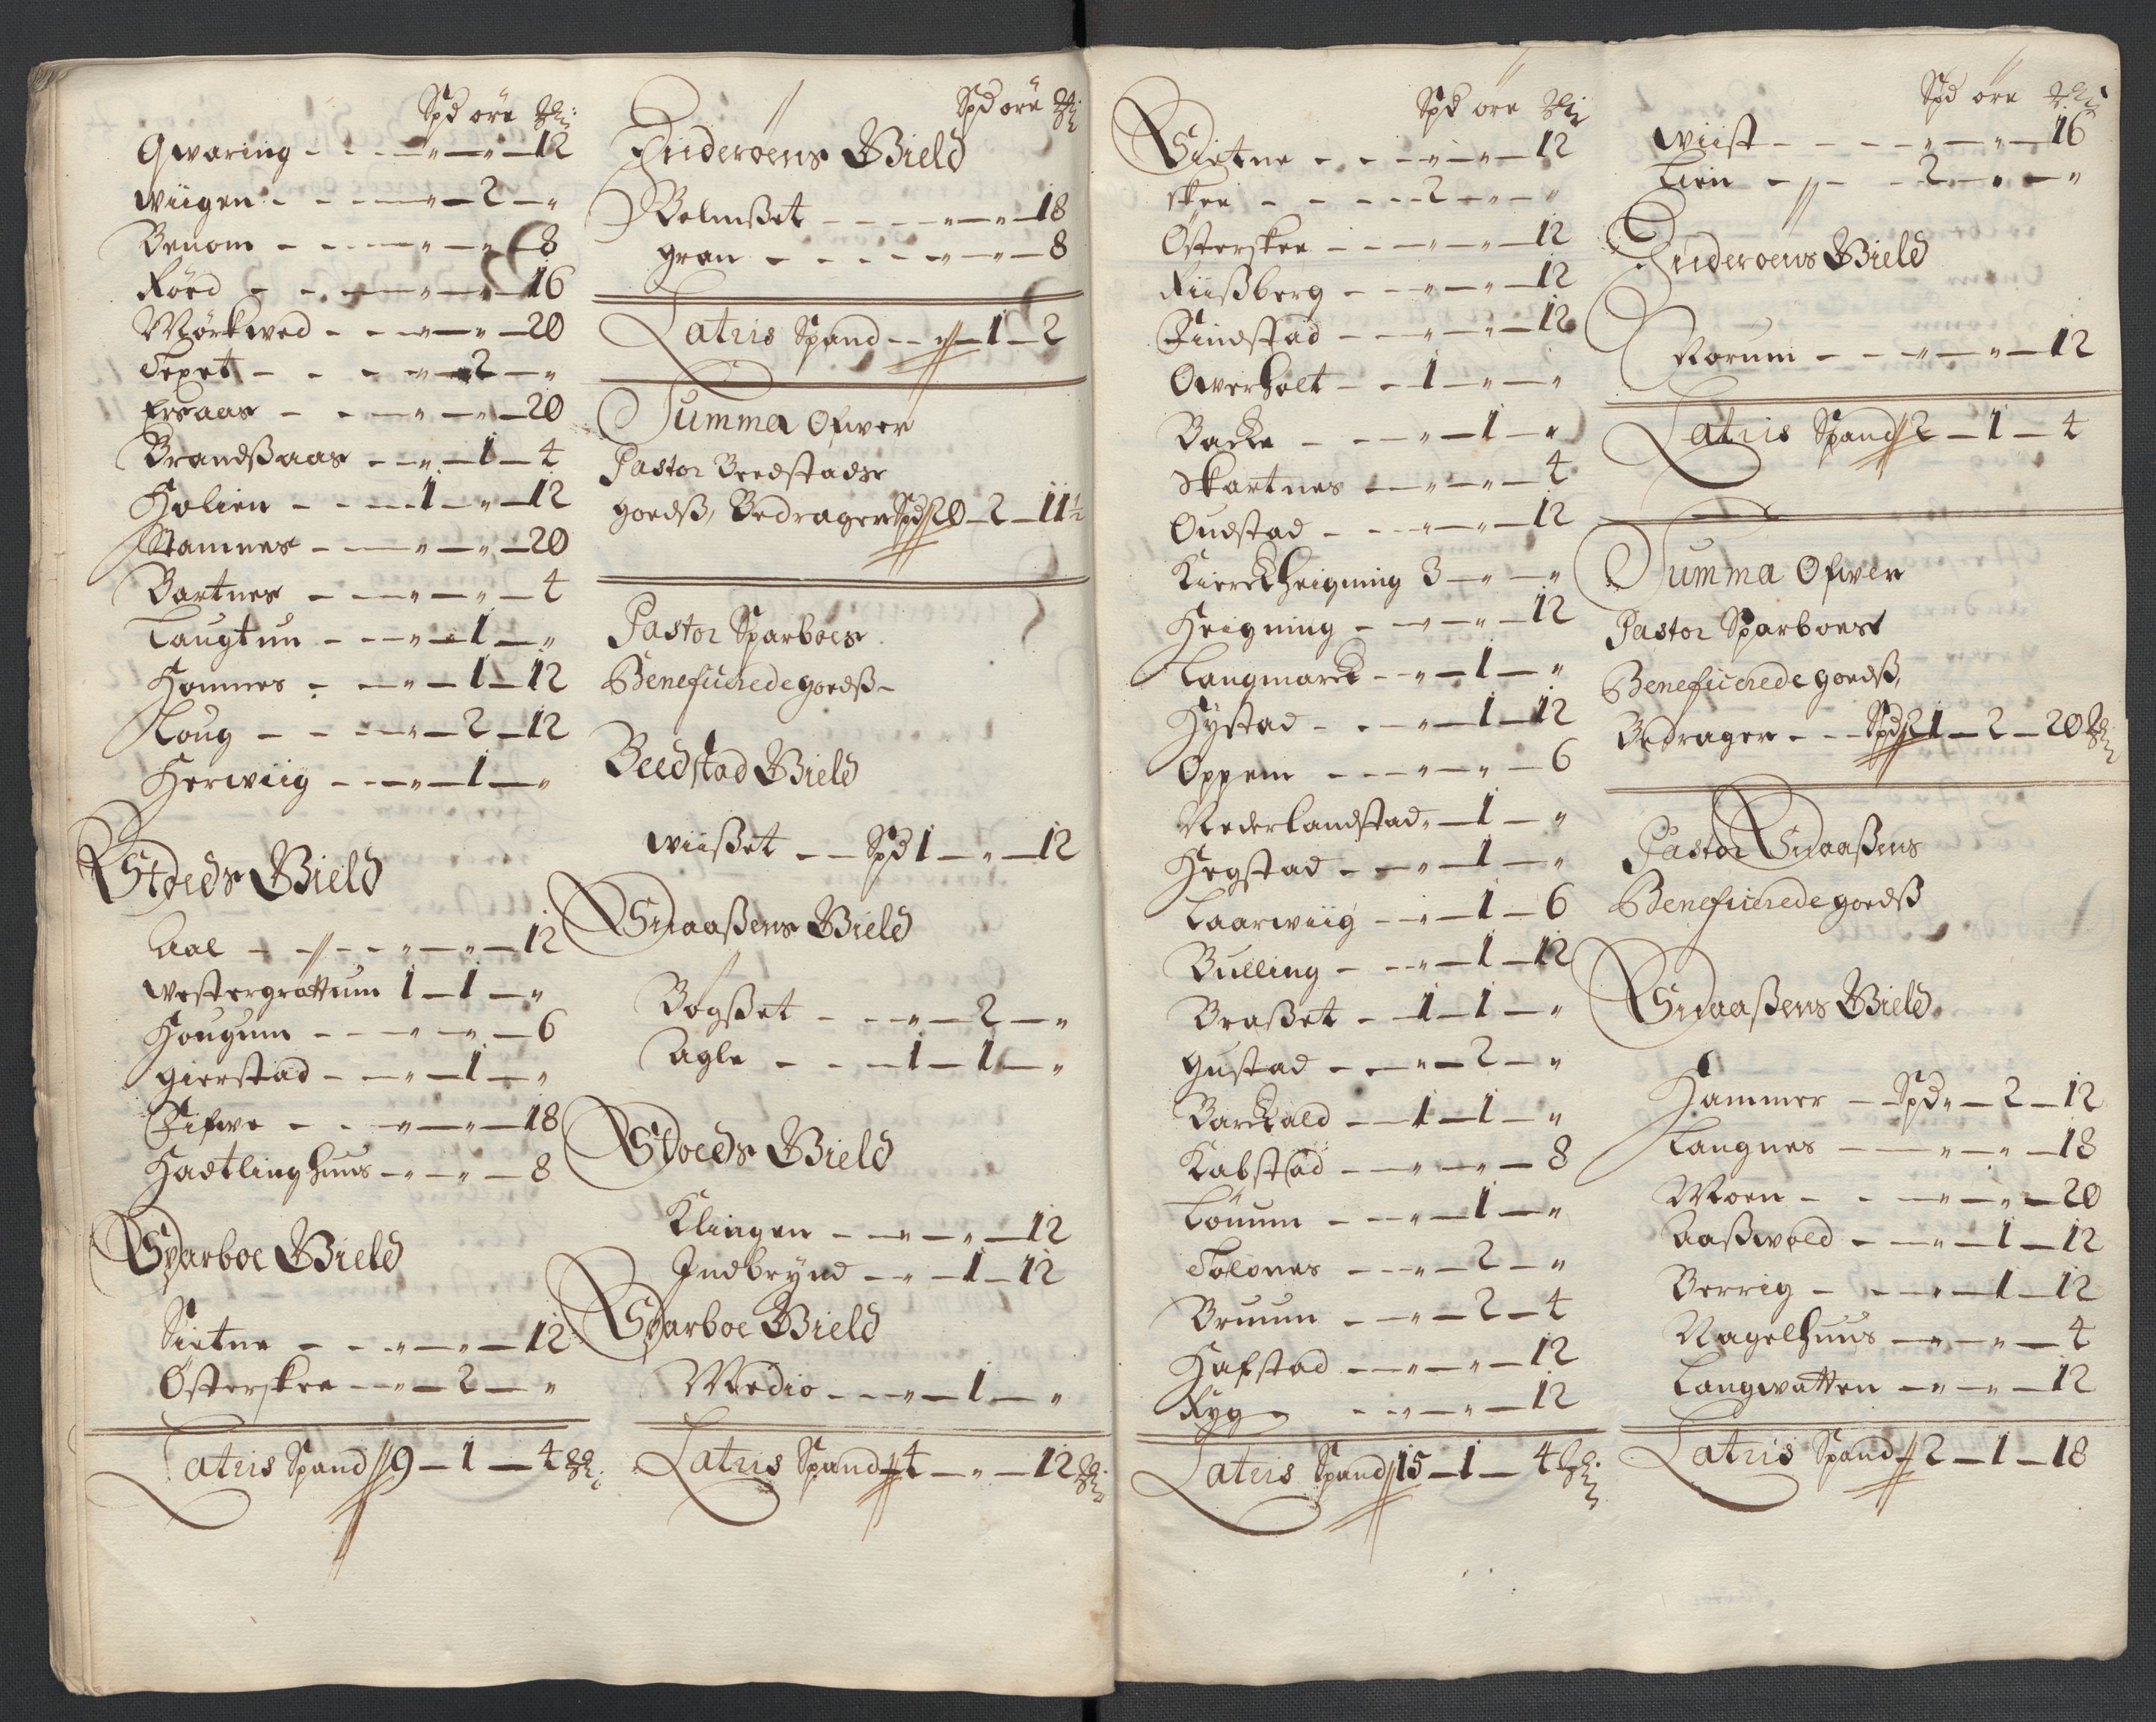 Spd öre
Qwaring - - - " - " - 12
Wiigen - - - " - 2 - "
Benom - - - " - " - 8
Röed - - - " - " - 16
Mörkved - - " - " - 20
Texet - - - " - 2 - "
Ersaas - - - " - " - 20
Brandßaas - - " - 1 - 4
Holien - - - 1 - " - 12
Stamnes - - " - " - 20
Bartnes - - " - " - 4
Laugtun - - - " - 1 - "
Homnes - - " - 1 - 12
Loug - - - " - 2 - 12
Herwiig - - - " - 1 - "
Stoeds Gield
Aal - - - " - " - 12
Westergrattum 1 - 1 - "
Hougum - - - " - " - 6
Gierstad - - " - 1 - "
Fifwe - - " - " - 18
Hadtlinghuus - " - " - 8
Sparboe Gield
Sietne - - " - " - 12
Österskee - - " - 2 - "
Lateris Spand 9 - 1 - 4
Spd öre
Inderoens Gield
Bolmßet - - - " - " - 18
Gran - - - " - " - 8
Lateris Spand - - " - 1 - 2
Summa Ofwer
Pastor Beedstads
goedß, Bedrager Spd 20 - 2 - 11½
Pastor Sparboes
Beneficerede goedß -
Beedstad Gield
Wiißet - - Spd 1 - " - 12
Snaaßens Gield
Bogßet - - - " - 2 - "
Agle - - - 1 - 1 - "
Stoeds Gield
Klingen - - " - " - 12
Indbrynd - - " - 1 - 12
Sparboe Gield
Medio - - - " - 1 - "
Lateris Spand 4 - " - 12
Spd öre
Sietne - - - " - " - 12
Skee - - - - 2 - " - "
Österskee - - - " - " - 12
Riißberg - - " - " - 12
Findstad - - - " - " - 12
Overholt - - 1 - " - "
Backe - - - " - 1 - "
Skartnes - - " - " - 4
Oudstad - - - " - " - 12
Kierckheigning 3 - " - "
Heigning - - " - " - 12
Langmarck - - " - 1 - "
Hystad - - - " - 1 - 12
Oppem - - - " - " - 6
Nederlandstad " - 1 - "
Hegstad - - " - 1 - "
Laarwiig - - " - 1 - 6
Bulling - - - " - 1 - 12
Braßet - 1 - 1 - "
Gustad - - - " - 2 - "
Barckald - - 1 - 1 - "
Kabstad - - " - " - 8
Lönum - - - " - 1 - "
Tolones - - - " - 2 - "
Bruum - - " - 2 - 4
Hafstad - - " - " - 12
Ryg - - - " - " - 12
Lateris Spand 15 - 1 - 4
Spd öre
Wiist - - - - " - " - 16
Lien - - - 2 - " - "
Inderoens Gield
Norum - - - " - " - 12
Lateris Spand 2 - 1 - 4
Summa Ofwer
Pastor Sparboes
Beneficerede goedß,
Bedrager - - Spd 21 - 2 - 20
Pastor Snaaßens
Beneficerede goedß
Snaaßens Gield
Hammer - Spd " - 2 - 12
Langnes - - - " - " - 18
Moen - - - " - " - 20
Aaßvold - - " - 1 - 12
Berrig - - - " - 1 - 12
Nagelhuus - " - " - 4
Langwatten - " - " - 12
Lateris Spand 2 - 1 - 18